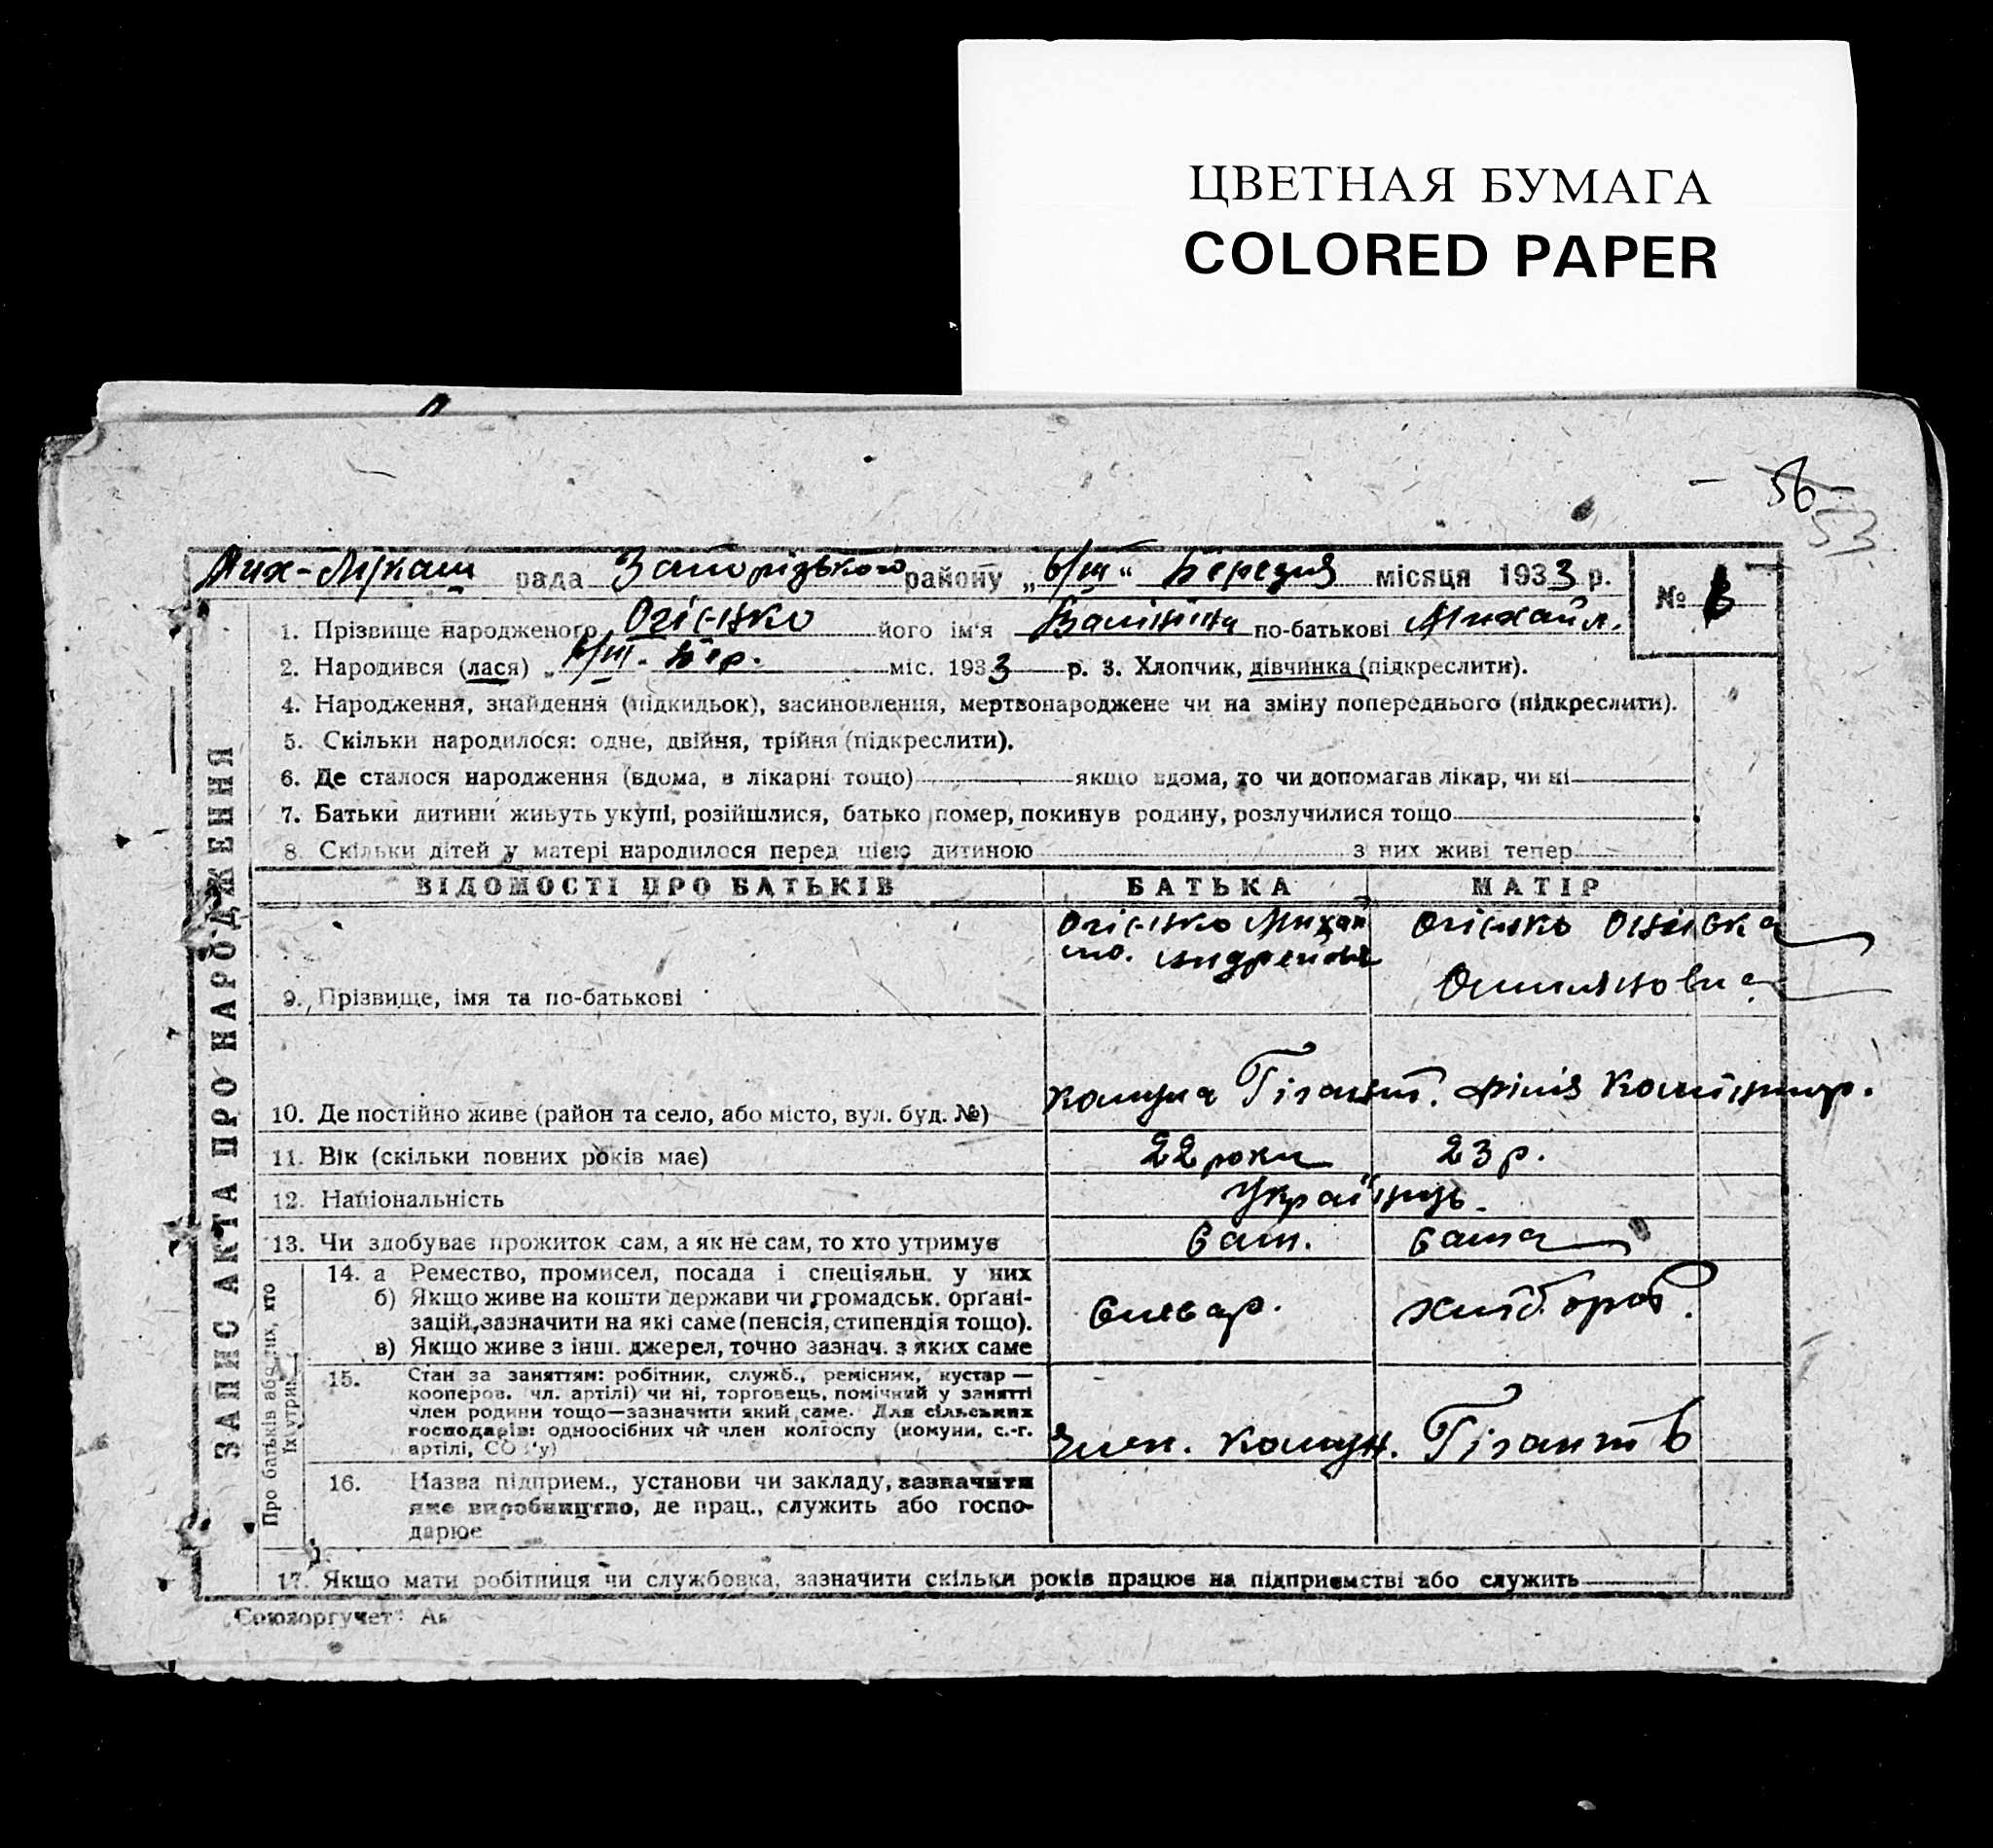 ЦВЕТНАЯ БУМАГА
COLORED PAPER
56
53
Мих-Лукаш рада Запорізького району „6/III“ Березня місяця 1933 р.
№ 6
1. Прізвище народженого Огієнко його ім'я Валініна по-батькові Михайл.
2. Народився (лася) „ 6/III. Бер. міс. 1933 р. 3. Хлопчик, дівчинка (підкреслити).
4. Народження, знайдення (підкидьок), засиновлення, мертвонароджене чи на зміну попереднього (підкреслити).
5. Скільки народилося: одне, двійня, трійня (підкреслити).
6. Де сталося народження (вдома, в лікарні тощо) якщо вдома, то чи допомагав лікар, чи ні
7. Батьки дитини живуть укупі, розійшлися, батько помер, покинув родину, розлучилися тощо
8. Скільки дітей у матері народилося перед цією дитиною з них живі тепер
ЗАПИС АКТА ПРО НАРОДЖЕННЯ
ВІДОМОСТІ ПРО БАТЬКІВ БАТЬКА МАТІР
Огієнко Михай Огієнко
9. Прізвище, імя та по-батькові
10. Де постійно живе (район та село, або місто, вул. буд. №) комуна Гігант. філія
11. Вік (скільки повних років має) 22 роки 23 р.
12. Національність Українць.
13. Чи здобуває прожиток сам, а як не сам, то хто утримує сам. сама
Про батьків або тих, хто їх утрим.
14. а Ремество, промисел, посада і спеціяльн. у них
б) Якщо живе на кошти держави чи громадськ. органі-
зацій, зазначити на які саме (пенсія, стипендія тощо). слюсар. хлібороб.
в) Якщо живе з інш. джерел, точно зазнач. з яких саме
15. Стан за заняттям: робітник, служб., ремісник, кустар —
кооперов. чл. артілі) чи ні, торговець, помічний у занятті
член родини тощо—зазначити який саме. Для сільських
господарів: одноосібних чи член колгоспу (комуни, с.-г.
артілі, СО у) Член. комун. Гігант
16. Назва підприєм., установи чи закладу, зазначити
яке виробництво, де прац., служить або госпо-
дарює
17. Якщо мати робітниця чи службовка, зазначити скільки років працює на підприємстві або служить
„Союзоргучет“